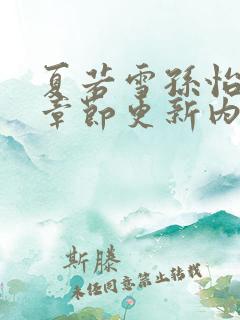 夏若雪孙怡
章节更新内
斯滕
未经同意禁止转载